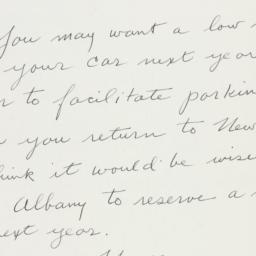 You may want a low
your car next year
to facilitate parking
you return to New
think it would be wise
Albany to reserve a
next year.